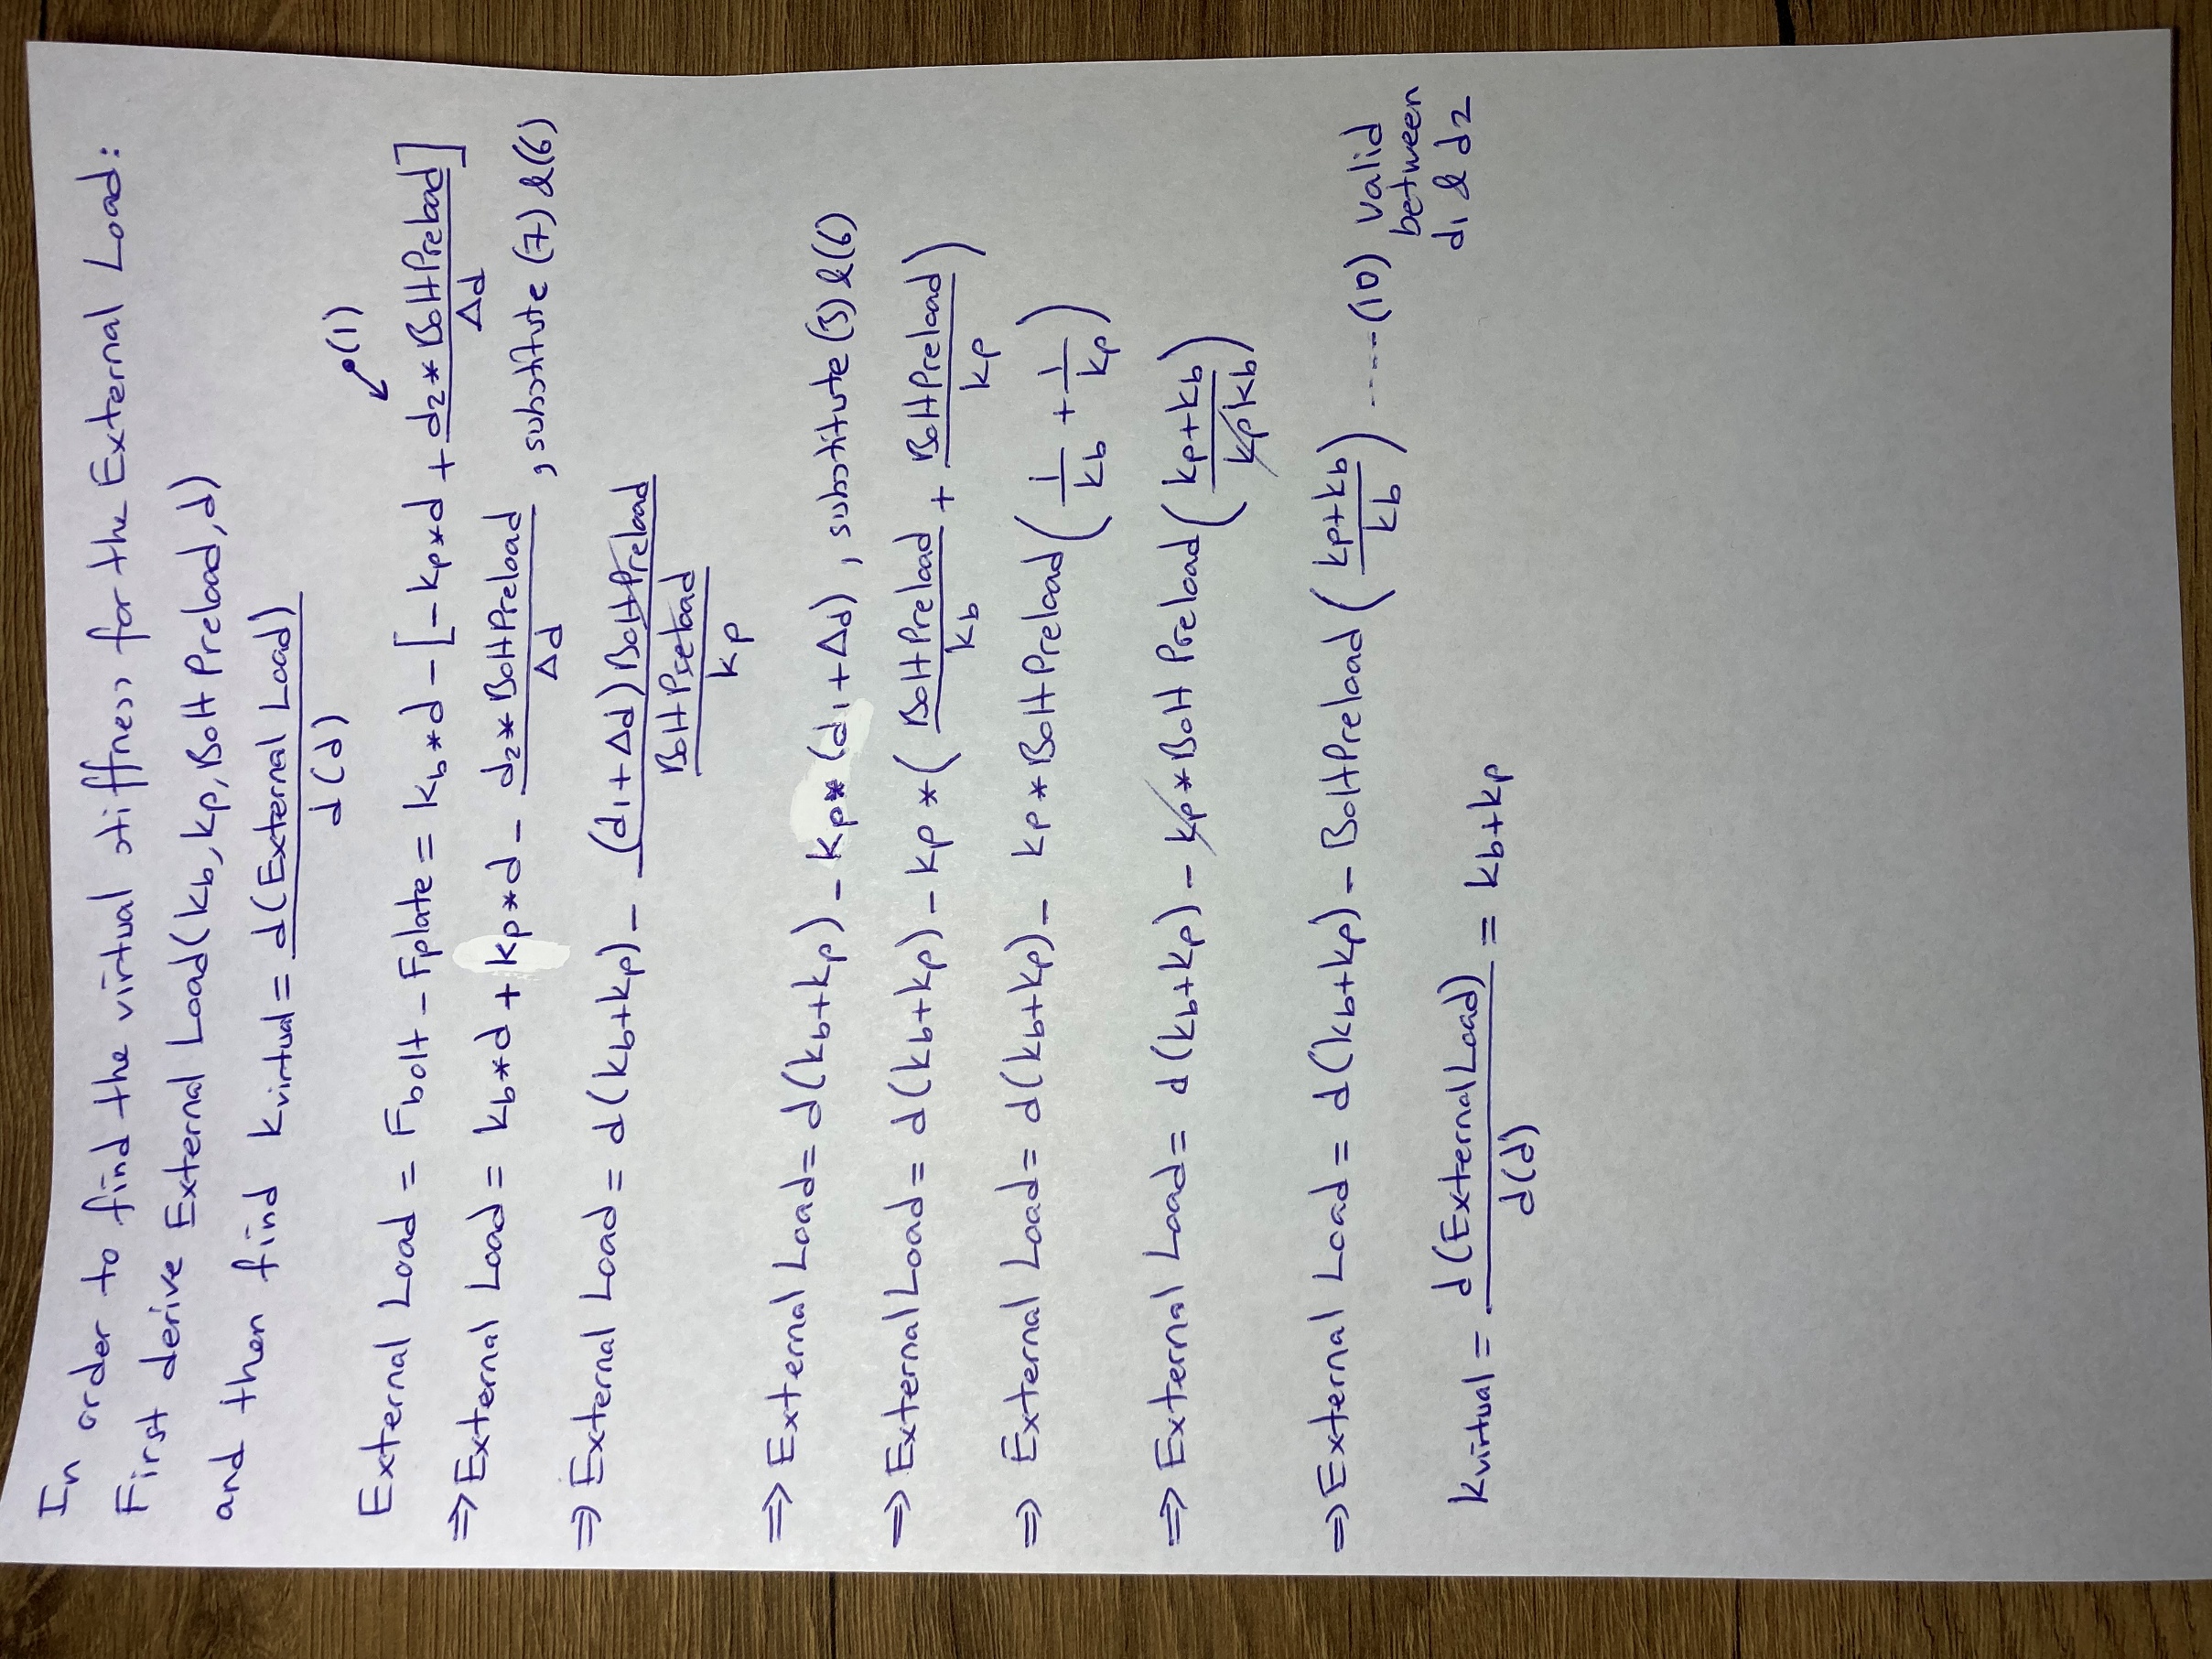 In order to find the virtual stiffness for the External Load:
First derive External Load(kb, kp, Bolt Preload, d)
and then find kvirtual = d(External Load) / d(d)
(1)
External Load = Fbolt - Fplate = kb*d - [-kp*d + d2*Bolt Preload / Δd]
⇒ External Load = kb*d + kp*d - d2*Bolt Preload / Δd , substitute (7) & (6)
⇒ External Load = d(kb+kp) - (d1+Δd) Bolt Preload / (Bolt Preload / kp)
⇒ External Load = d(kb+kp) - kp*(d1+Δd), substitute (3) & (6)
⇒ External Load = d(kb+kp) - kp*(Bolt Preload / kb + Bolt Preload / kp)
⇒ External Load = d(kb+kp) - kp*Bolt Preload(1/kb + 1/kp)
⇒ External Load = d(kb+kp) - kp*Bolt Preload(kp+kb / kpkb)
⇒ External Load = d(kb+kp) - Bolt Preload(kp+kb / kb) ----(10) valid between d1 & d2
kvirtual = d(External Load) / d(d) = kb+kp